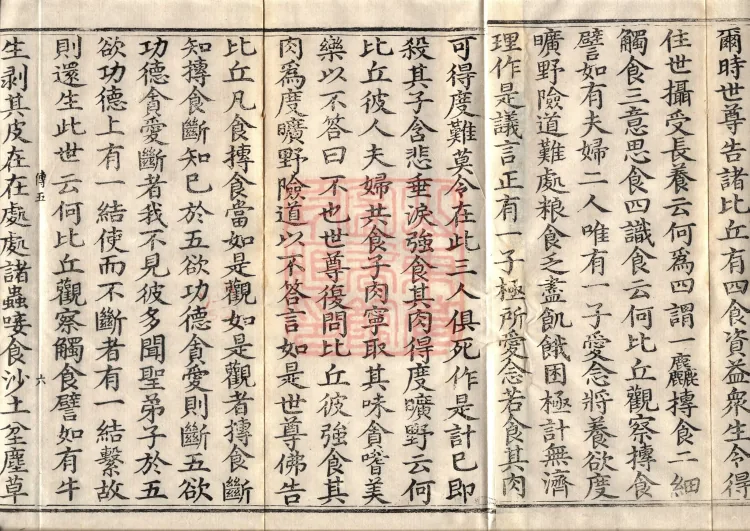 爾時世尊告諸比丘有四食資益衆生令得
住世攝受長養云何爲四謂一麤摶食二細
觸食三意思食四識食云何比丘觀察摶食
譬如有夫婦二人唯有一子愛念將養欲度
曠野險道難處粮食乏盡飢餓困極計無濟
理作是議言正有一子極所愛念若食其肉
可得度難莫令在此三人俱死作是計已即
殺其子含悲垂淚強食其肉得度曠野云何
比丘彼人夫婦共食子肉寧取其味貪嗜美
樂以不答曰不也世尊復問比丘彼強食其
肉爲度曠野險道以不答言如是世尊佛告
比丘凡食摶食當如是觀如是觀者摶食斷
知摶食斷知已於五欲功德貪愛則斷五欲
功德貪愛斷者我不見彼多聞聖弟子於五
欲功德上有一結使而不斷者有一結繫故
則還生此世云何比丘觀察觸食譬如有牛
傅五
六
生剥其皮在在處處諸蟲唼食沙土坌塵草